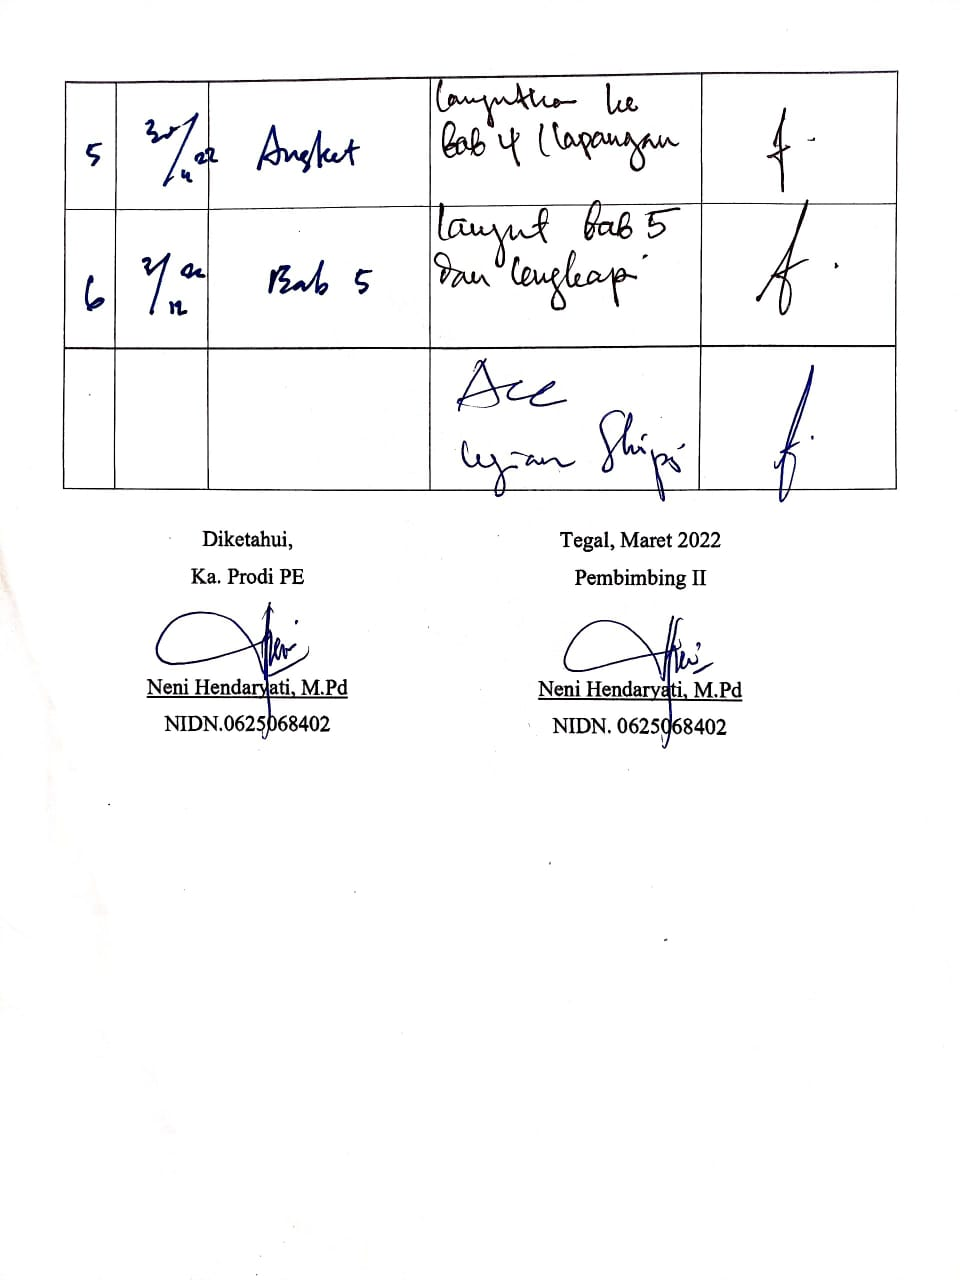 5
30/4 22
Angket
Lanjutkan ke
Bab 4 / lapangan
6
2/12 22
Bab 5
Lanjut Bab 5
dan lengkapi
Acc
Ujian Skripsi
Diketahui,
Ka. Prodi PE
Neni Hendaryati, M.Pd
NIDN.0625068402
Tegal, Maret 2022
Pembimbing II
Neni Hendaryati, M.Pd
NIDN. 0625068402